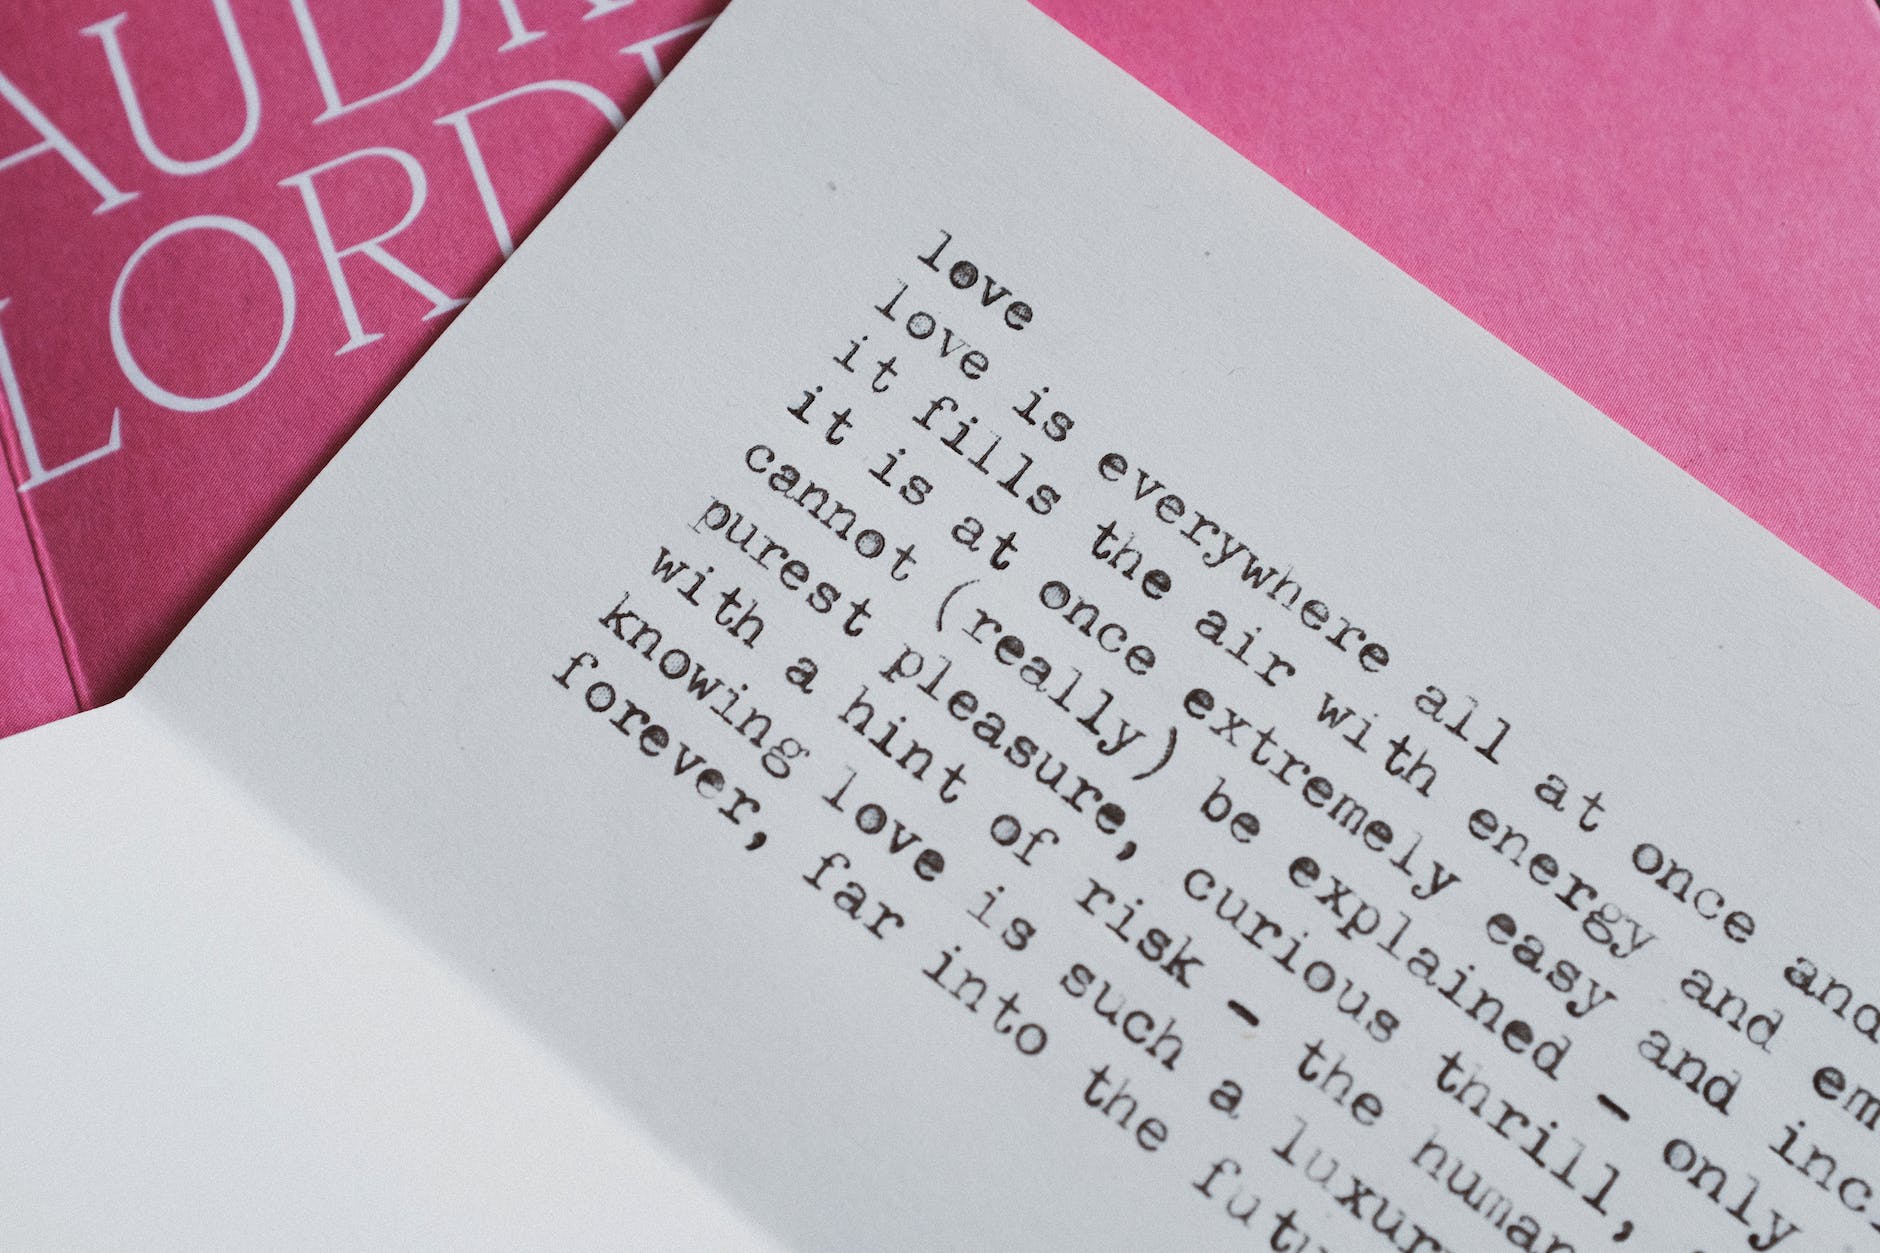 love
love is everywhere all at once and
it fills the air with energy and
it is at once extremely easy and
cannot (really) be explained - only
purest pleasure, curious thrill,
with a hint of risk - the human
knowing love is such a
forever, far into the